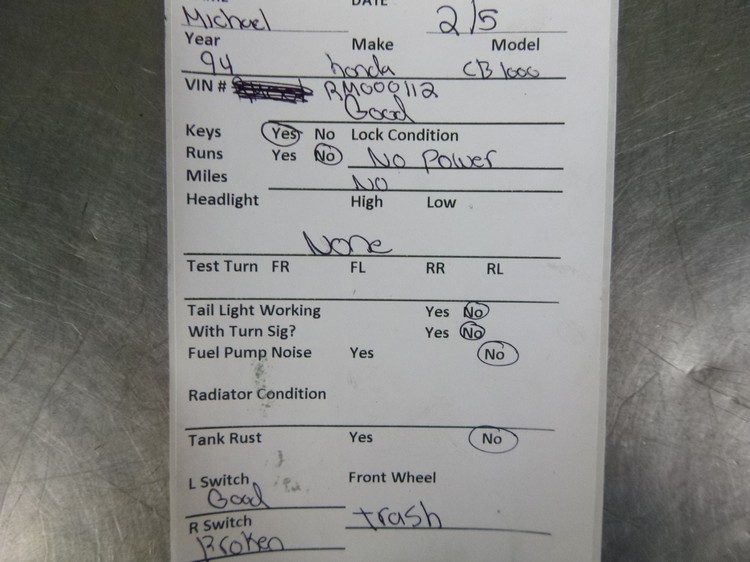 DATE
Michael 2/5
Year Make Model
94 honda CB 1000
VIN # RM000112
Good
Keys Yes No Lock Condition
Runs Yes No No Power
Miles No
Headlight High Low
None
Test Turn FR FL RR RL
Tail Light Working Yes No
With Turn Sig? Yes No
Fuel Pump Noise Yes No
Radiator Condition
Tank Rust Yes No
L Switch Front Wheel
Good trash
R Switch
Broken